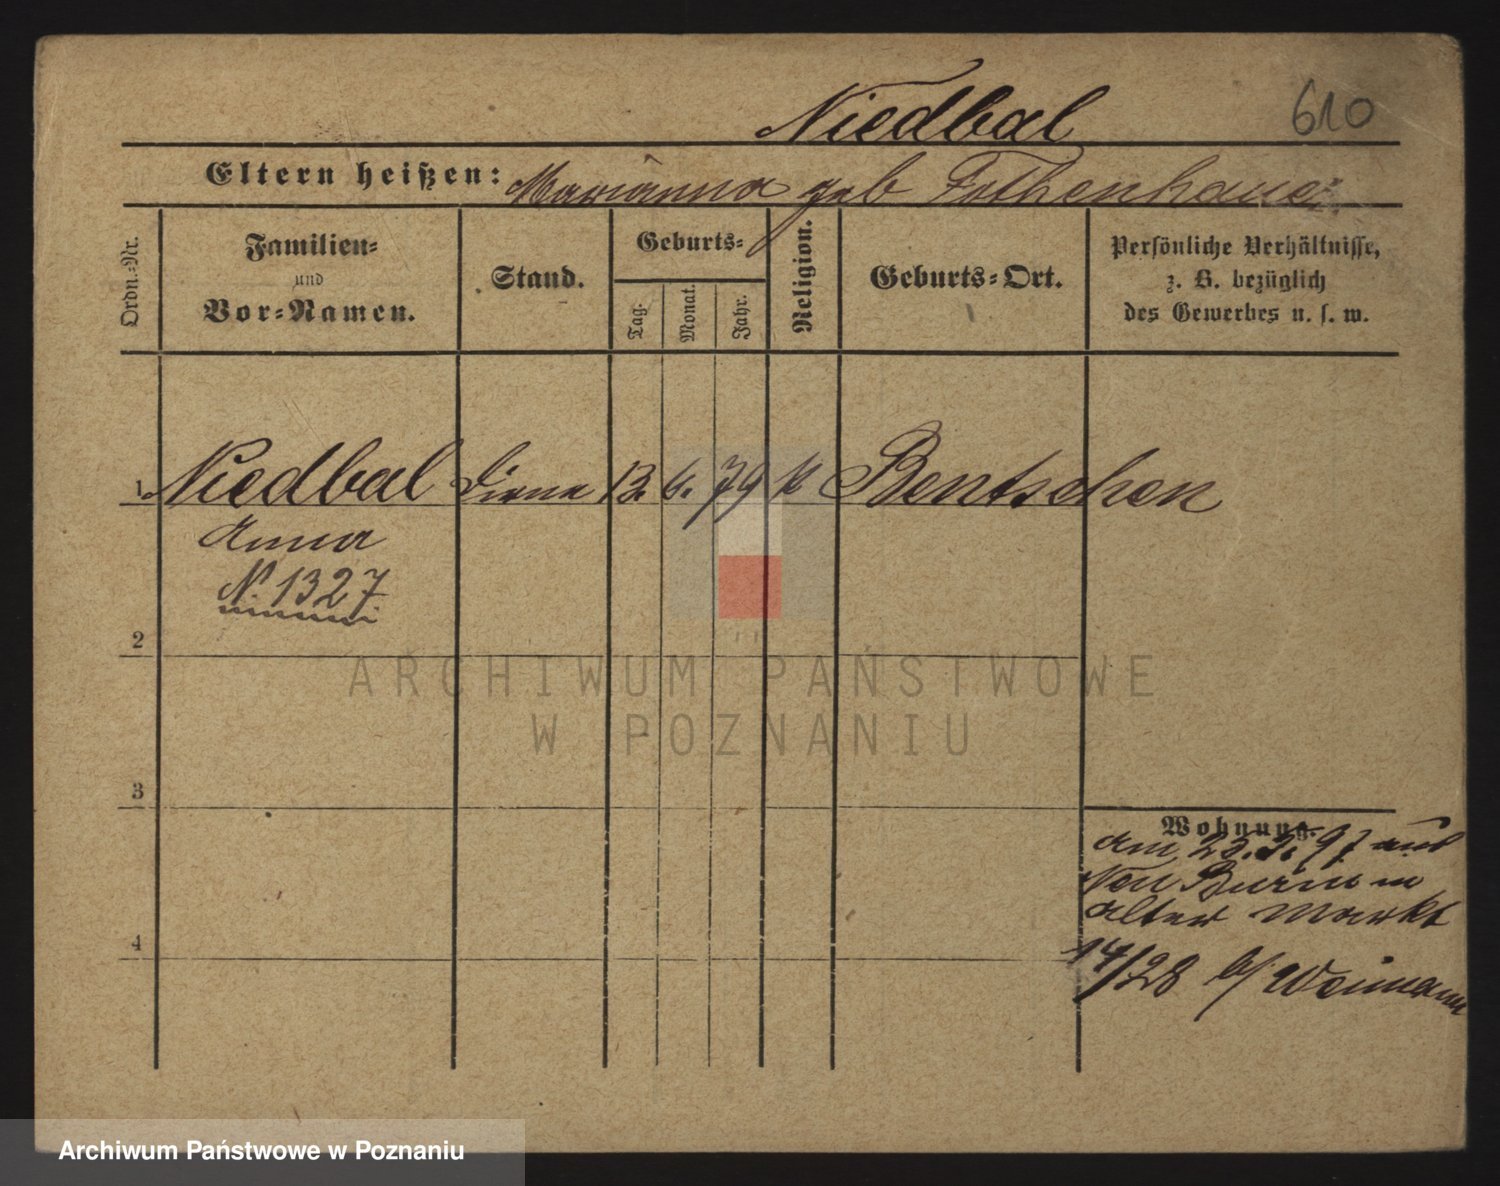 Niedbal
610
Eltern heißen: Marianna geb
Ordn.-Nr.
Familien-
und
Vor-Namen.
Stand.
Geburts-
Tag.
Monat.
Jahr.
Religion.
Geburts-Ort.
Persönliche Verhältnisse,
z. B. bezüglich
des Gewerbes u. s. w.
1 Niedbal Dirne 13. 6. 79 k Bentschen
Anna
N. 1327
2
3
4
Wohnung.
am 97 aus
in
alter Markt
14/28 b/
ARCHIWUM PAŃSTWOWE
W POZNANIU
Archiwum Państwowe w Poznaniu